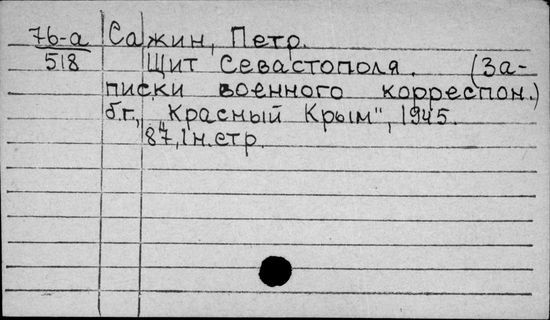 76-а Сажин, Петр.
518 Щит Севастополя. (За-
писки военного корреспон.)
б.г., "Красный Крым", 1945.
87, 1 н. стр.